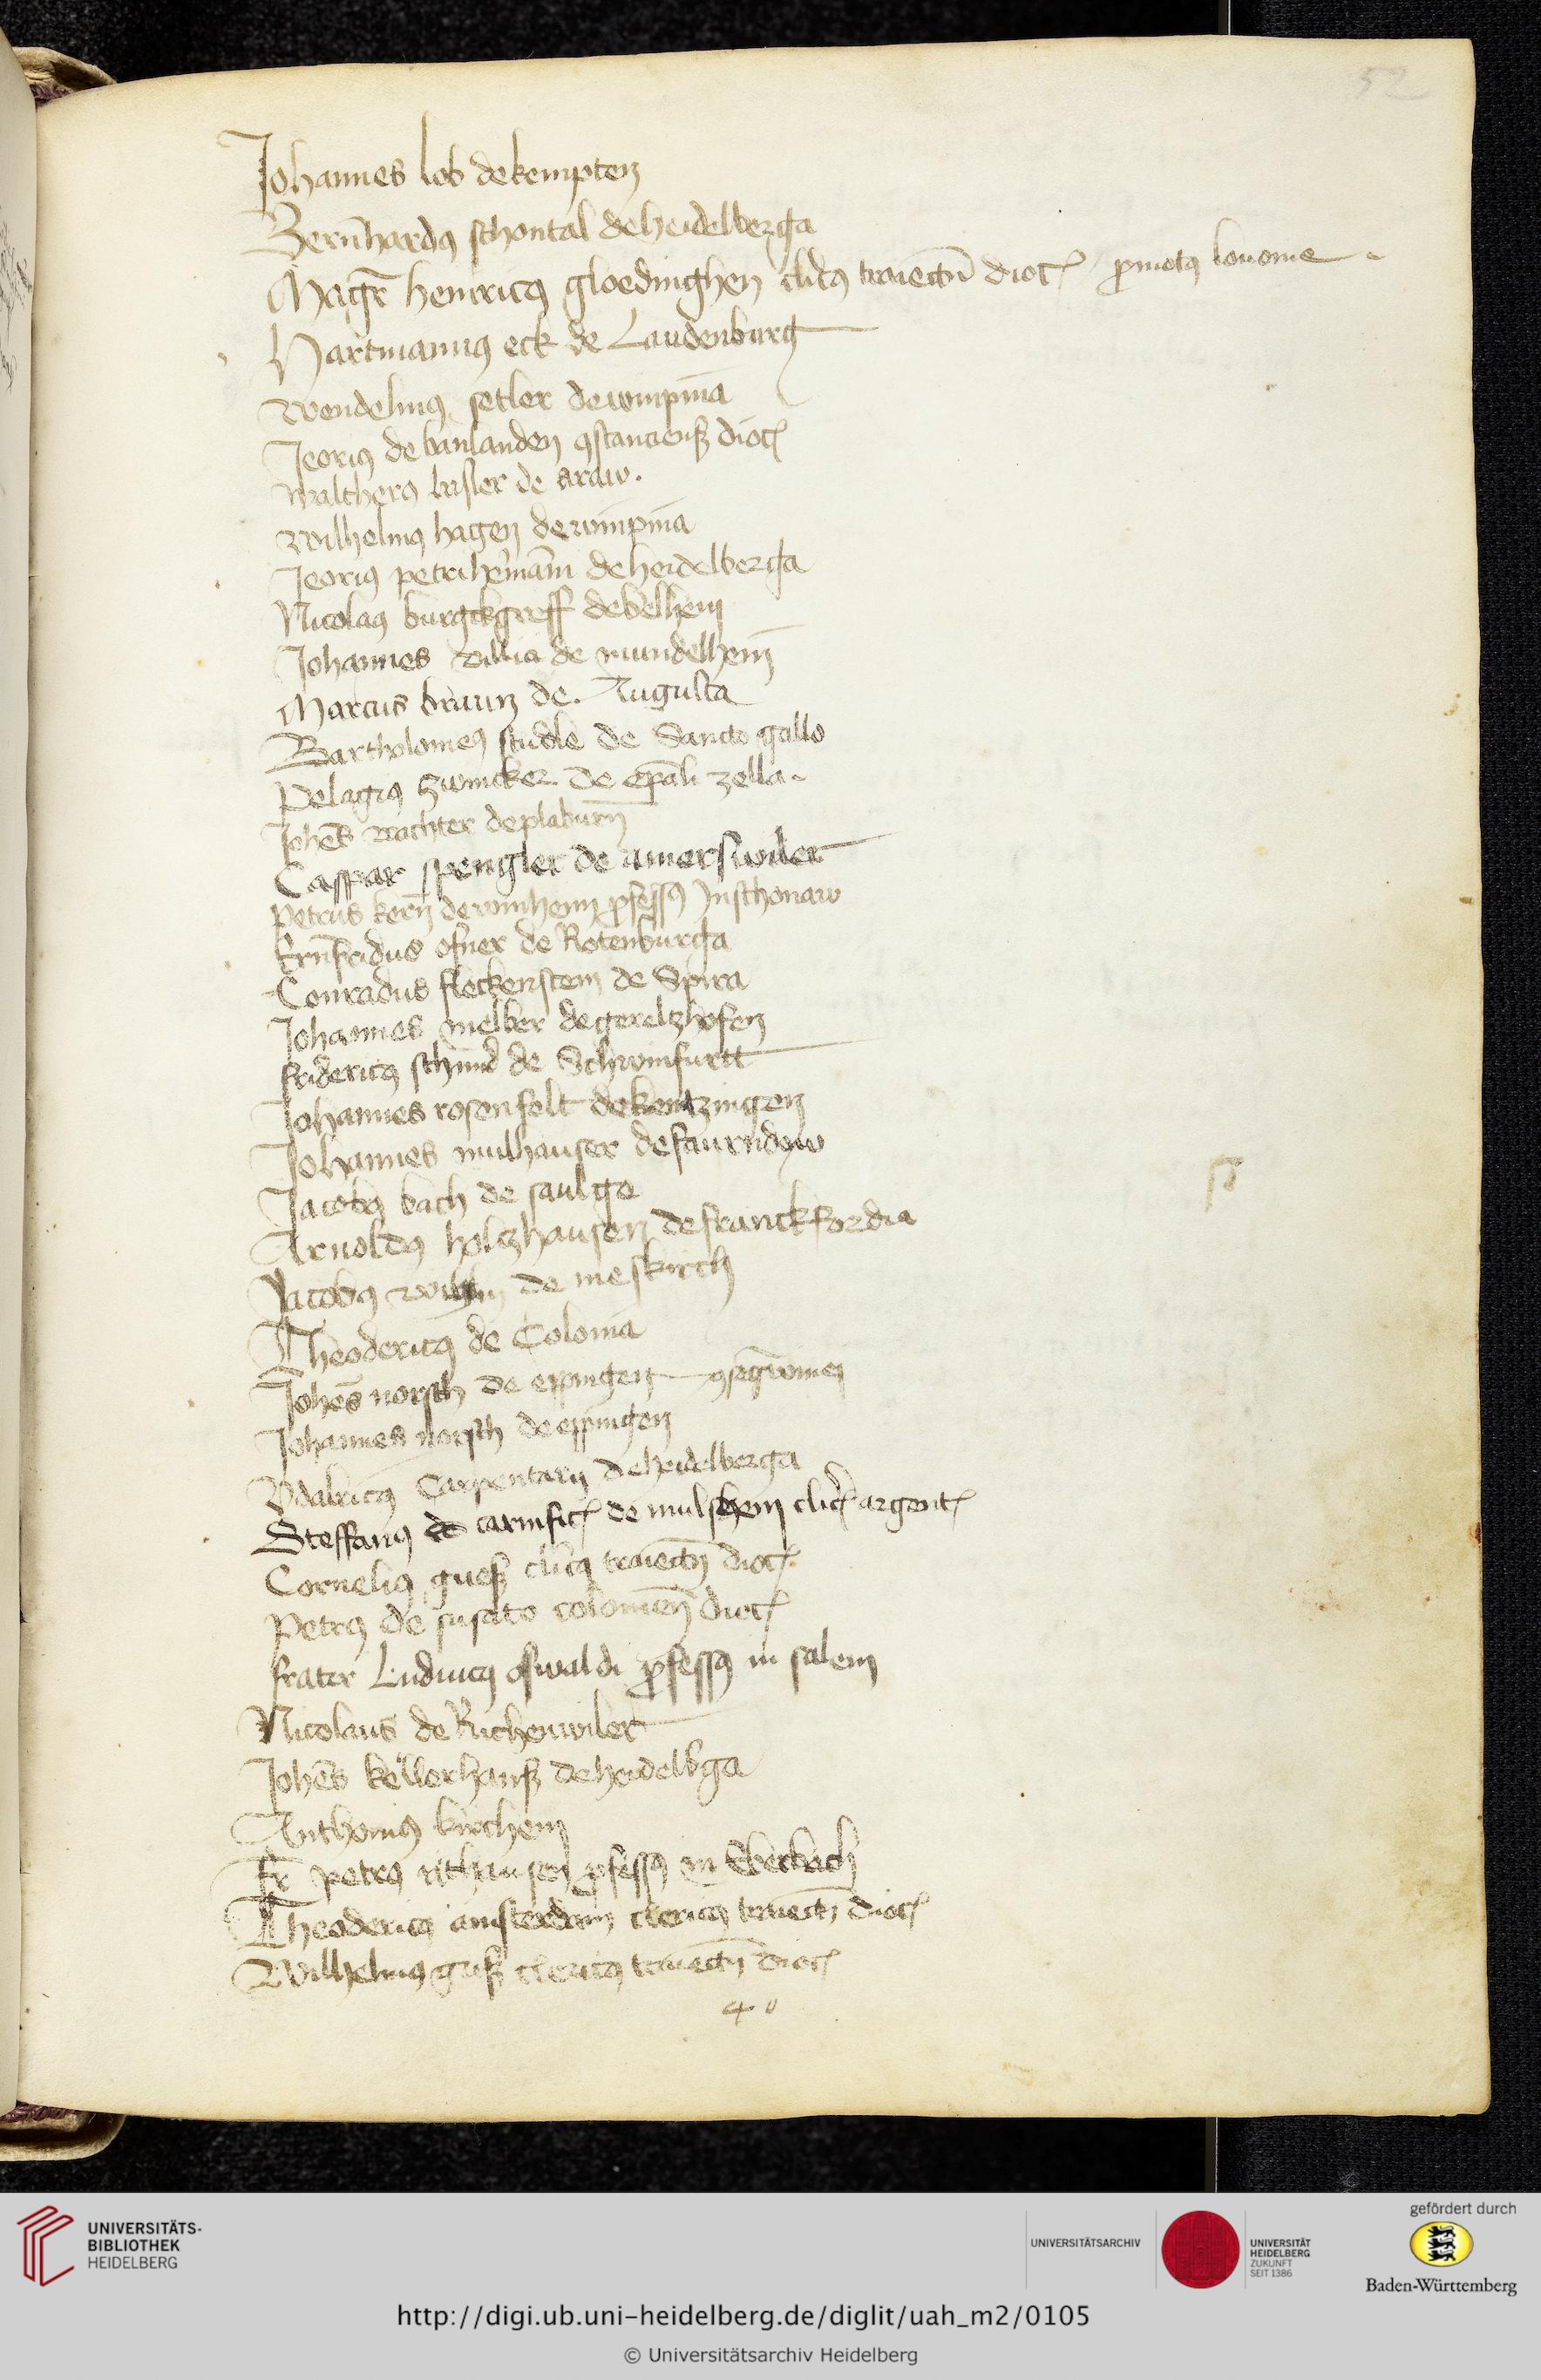 52
Johannes lob de kempten
Bernhardus schontal de heidelberga
Magr henricus gloedinghen clicus traiecten dioc promotus lovonie
Hartmannus eck de Laudenburg
Wendelinus setler de wimpina
Jeorius de banlanden constanciensis dioc
Waltherus hasler de araw.
Wilhelmus hagen de wimpina
Jeorius petri hemani de heidelberga
Nicolaus burgckgreff de
Johannes villici de mundelhem
Marcus brum de. Augusta
Bartholomeus studle de Sancto gallo
Pelagius zwincker de epali zella
Johes wachter de plaburn
Caspar spengler de amerswiler
Petrus kern de winhem pfessus Jn schonaw
Ernfridus ofner de Rotenburga
Conradus fleckenstein de Spira
Johannes melber de gereltzhofen
fridericus schmid de Schwinfurtt
Johannes rosenfelt de kentzingen
Johannes mulhauser de faurndow
Jacobus bach de saulge
Arnoldus holtzhausen de franckfordia
Jacobus de meskirch
Theodericus de Colonia
Johes norsch de eppingen
Johannes norsch de eppingen
Vdalricus Carpentarij de heidelberga
Steffanus carnific de mulshem clic argent
Cornelius gueß clicus traiecten dioc
Petrus de susato colonien dioc
frater Ludwicus oswaldi pfessus in salem
Nicolaus de Richenwiler
Johes kellerhanß de heidelbga
Anthonius kirchem
Fr petrus pfessus in Eberbach
Theodericus amsterdam clericus traiecten dioc
Wilhelmus guß clericus traiecten dioc
40
UNIVERSITÄTS-
BIBLIOTHEK
HEIDELBERG
UNIVERSITÄTSARCHIV
UNIVERSITÄT
HEIDELBERG
ZUKUNFT
SEIT 1386
gefördert durch
Baden-Württemberg
http://digi.ub.uni-heidelberg.de/diglit/uah_m2/0105
© Universitätsarchiv Heidelberg